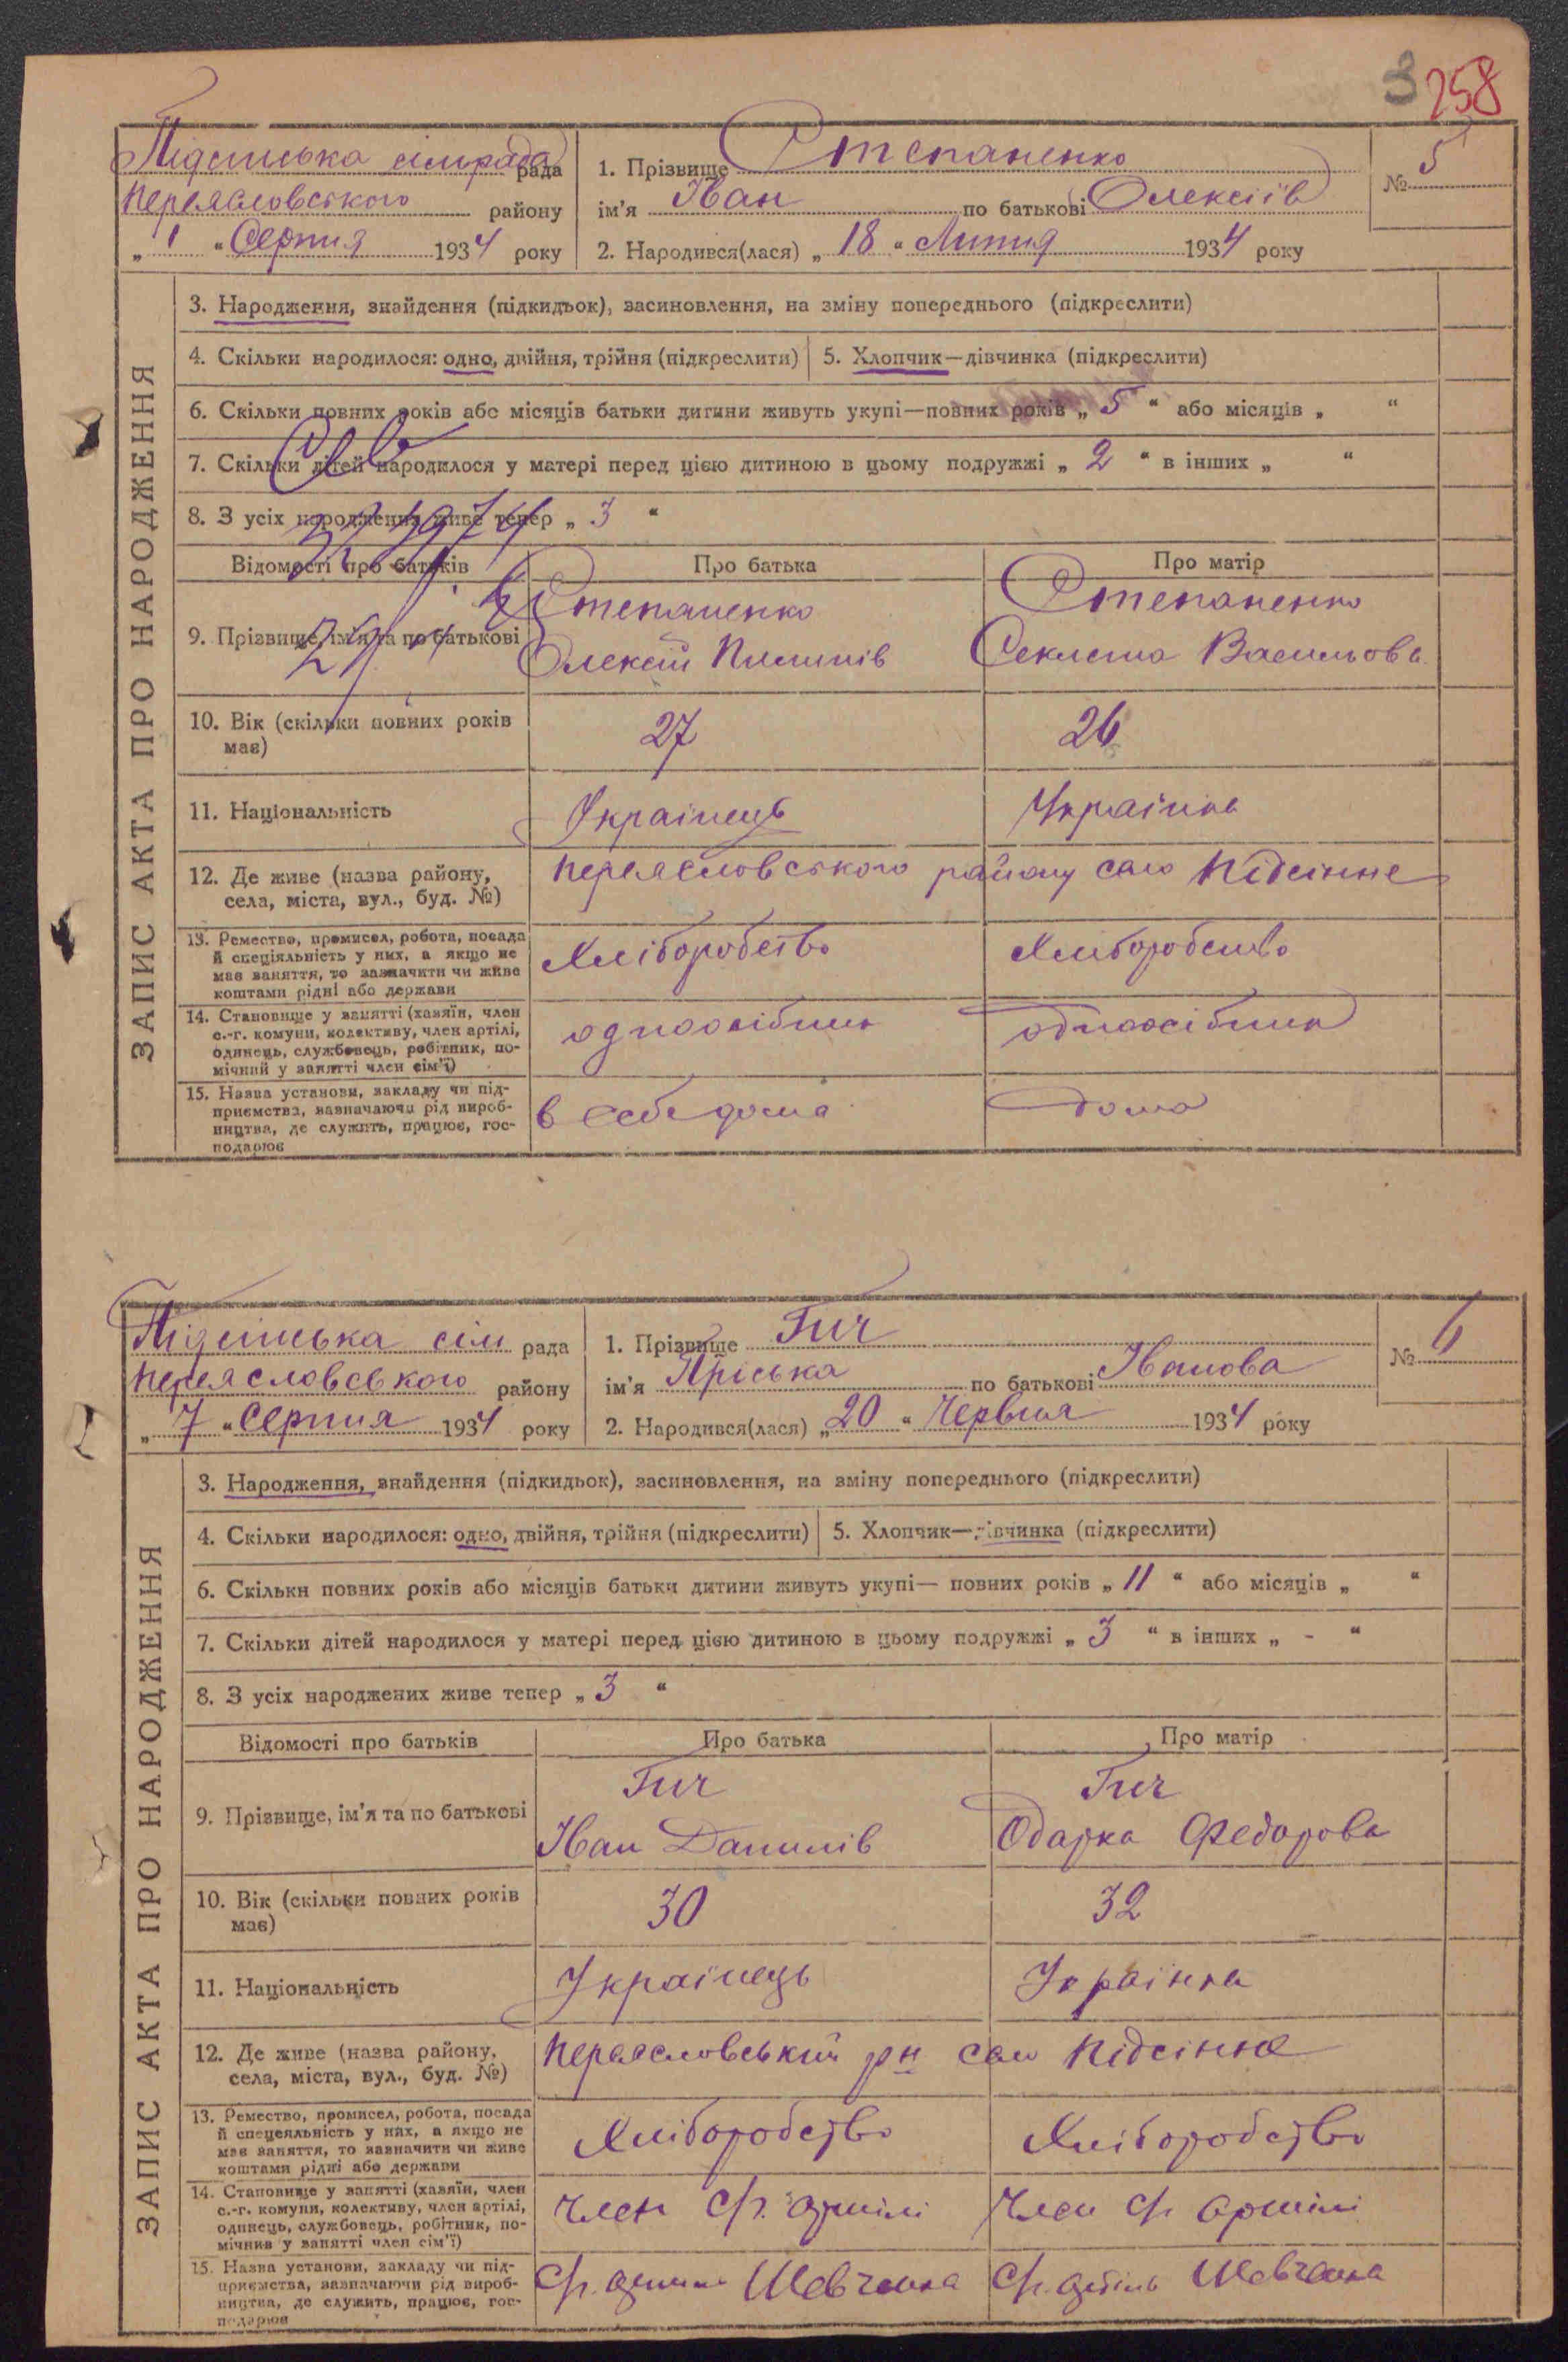 3 258
Підсінська сільрада рада
Переясловського району
„ 1 “ Серпня 1934 року
1. Прізвище Степаненко
ім'я Іван по батькові Олексіїв
2. Народився(лася) „ 18 “ Липня 1934 року
№ 5
ЗАПИС АКТА ПРО НАРОДЖЕННЯ
3. Народження, знайдення (підкидьок), засиновлення, на зміну попереднього (підкреслити)
4. Скільки народилося: одно, двійня, трійня (підкреслити) 5. Хлопчик—дівчинка (підкреслити)
6. Скільки повних років або місяців батьки дитини живуть укупі—повних років „ 5 “ або місяців „ “
7. Скільки дітей народилося у матері перед цією дитиною в цьому подружжі „ 2 “ в інших „ “
8. З усіх народжених живе тепер „ 3 “
Відомості про батьків Про батька Про матір
9. Прізвище, ім'я та по батькові
Степаненко
Олексій Пилипів
Степаненко
Секлета Васильова
10. Вік (скільки повних років
має)
27 26
11. Національність Українець Українка
12. Де живе (назва району,
села, міста, вул., буд. №)
Переясловського району село Підсінне
13. Ремество, промисел, робота, посада
й спеціяльність у них, а якщо не
має заняття, то зазначити чи живе
коштами рідні або держави
Хліборобство Хліборобство
14. Становище у занятті (хазяїн, член
с.-г. комуни, колективу, член артілі,
одинець, службовець, робітник, по-
мічний у занятті член сім'ї)
одноосібник одноосібник
15. Назва установи, закладу чи під-
приємства, зазначаючи рід вироб-
ництва, де служить, працює, гос-
подарює
в себе дома дома
Підсінська сіль рада
Переясловського району
„ 7 “ Серпня 1934 року
1. Прізвище Гич
ім'я Пріська по батькові Іванова
2. Народився(лася) „ 20 “ Червня 1934 року
№ 6
ЗАПИС АКТА ПРО НАРОДЖЕННЯ
3. Народження, знайдення (підкидьок), засиновлення, на зміну попереднього (підкреслити)
4. Скільки народилося: одно, двійня, трійня (підкреслити) 5. Хлопчик—дівчинка (підкреслити)
6. Скільки повних років або місяців батьки дитини живуть укупі— повних років „ 11 “ або місяців „ “
7. Скільки дітей народилося у матері перед цією дитиною в цьому подружжі „ 3 “ в інших „ - “
8. З усіх народжених живе тепер „ 3 “
Відомості про батьків Про батька Про матір
9. Прізвище, ім'я та по батькові
Гич
Іван Данилів
Гич
Одарка Федорова
10. Вік (скільки повних років
має)
30 32
11. Національність Українець Українка
12. Де живе (назва району,
села, міста, вул., буд. №)
Переясловський рн село Підсінне
13. Ремество, промисел, робота, посада
й спецеяльність у них, а якщо не
має заняття, то зазначити чи живе
коштами рідні або держави
Хліборобство Хліборобство
14. Становище у занятті (хазяїн, член
с.-г. комуни, колективу, член артілі,
одинець, службовець, робітник, по-
мічний у занятті член сім'ї)
Член с/г. артілі Член с/г артілі
15. Назва установи, закладу чи під-
приємства, зазначаючи рід вироб-
ництва, де служить, працює, гос-
подарює
С/г. артіль Шевченка С/г. артіль Шевченка